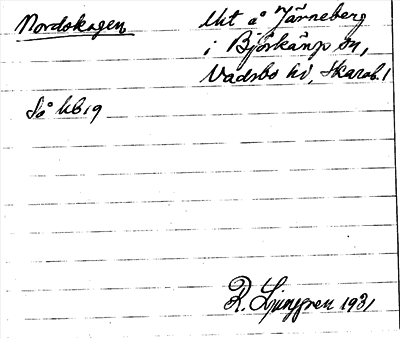 Nordskogen
Utt å Järneberg
i Björkäng sn,
Vadsbo hd, Skarab. l
Så hb 19
R. Ljunggren 1931